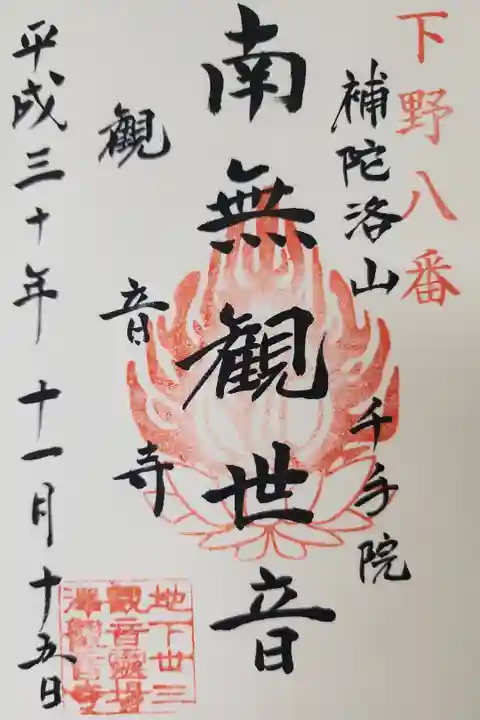 下野八番
補陀洛山 千手院
南無観世音
観音寺
平成三十年 十一月 十五日
地下世三
観音霊場
澤観音寺